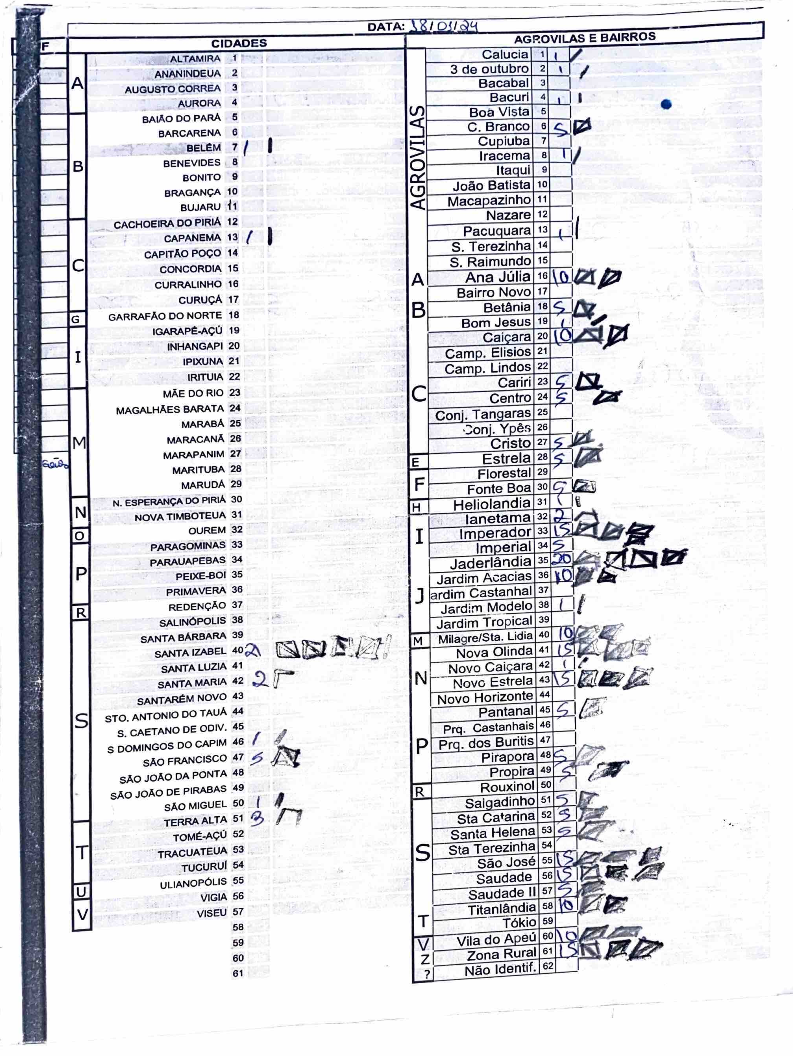 DATA: 18/01/24
F
CIDADES
A
ALTAMIRA 1
ANANINDEUA 2
AUGUSTO CORREA 3
AURORA 4
B
BAIÃO DO PARÁ 5
BARCARENA 6
BELÉM 7 1
BENEVIDES 8
BONITO 9
BRAGANÇA 10
BUJARU 11
C
CACHOEIRA DO PIRIÁ 12
CAPANEMA 13 1
CAPITÃO POÇO 14
CONCORDIA 15
CURRALINHO 16
CURUÇÁ 17
G
GARRAFÃO DO NORTE 18
I
IGARAPÉ-AÇÚ 19
INHANGAPI 20
IPIXUNA 21
IRITUIA 22
M
MÃE DO RIO 23
MAGALHÃES BARATA 24
MARABÁ 25
MARACANÃ 26
MARAPANIM 27
MARITUBA 28
MARUDÁ 29
N
N. ESPERANÇA DO PIRIÁ 30
NOVA TIMBOTEUA 31
O
OUREM 32
P
PARAGOMINAS 33
PARAUAPEBAS 34
PEIXE-BOI 35
PRIMAVERA 36
R
REDENÇÃO 37
S
SALINÓPOLIS 38
SANTA BÁRBARA 39
SANTA IZABEL 40
SANTA LUZIA 41
SANTA MARIA 42 2
SANTARÉM NOVO 43
STO. ANTONIO DO TAUÁ 44
S. CAETANO DE ODIV. 45
S DOMINGOS DO CAPIM 46 1
SÃO FRANCISCO 47 5
SÃO JOÃO DA PONTA 48
SÃO JOÃO DE PIRABAS 49
SÃO MIGUEL 50 1
T
TERRA ALTA 51 3
TOMÉ-AÇÚ 52
TRACUATEUA 53
TUCURUÍ 54
U
ULIANOPÓLIS 55
V
VIGIA 56
VISEU 57
58
59
60
61
AGROVILAS E BAIRROS
AGROVILAS
Calucia 1 1
3 de outubro 2 1
Bacabal 3
Bacuri 4 1
Boa Vista 5
C. Branco 6 5
Cupiuba 7
Iracema 8 1
Itaqui 9
João Batista 10
Macapazinho 11
Nazare 12
Pacuquara 13 1
S. Terezinha 14
S. Raimundo 15
A
Ana Júlia 16 10
B
Bairro Novo 17
Betânia 18 5
Bom Jesus 19 1
C
Caiçara 20 10
Camp. Elisios 21
Camp. Lindos 22
Cariri 23 5
Centro 24 5
Conj. Tangaras 25
Conj. Ypês 26
Cristo 27 5
E
Estrela 28 5
F
Florestal 29
Fonte Boa 30 5
H
Heliolandia 31 1
I
Ianetama 32 2
Imperador 33 15
Imperial 34 5
J
Jaderlândia 35 20
Jardim Acacias 36 10
ardim Castanhal 37
Jardim Modelo 38 1
Jardim Tropical 39
M
Milagre/Sta. Lidia 40 10
N
Nova Olinda 41 15
Novo Caiçara 42 1
Novo Estrela 43 15
Novo Horizonte 44
P
Pantanal 45 5
Prq. Castanhais 46
Prq. dos Buritis 47
Pirapora 48 5
Propira 49 5
R
Rouxinol 50
S
Salgadinho 51 5
Sta Catarina 52 5
Santa Helena 53 5
Sta Terezinha 54
São José 55 15
Saudade 56 15
Saudade II 57 5
T
Titanlândia 58 10
Tókio 59
V
Vila do Apeú 60 10
Z
Zona Rural 61 15
?
Não Identif. 62